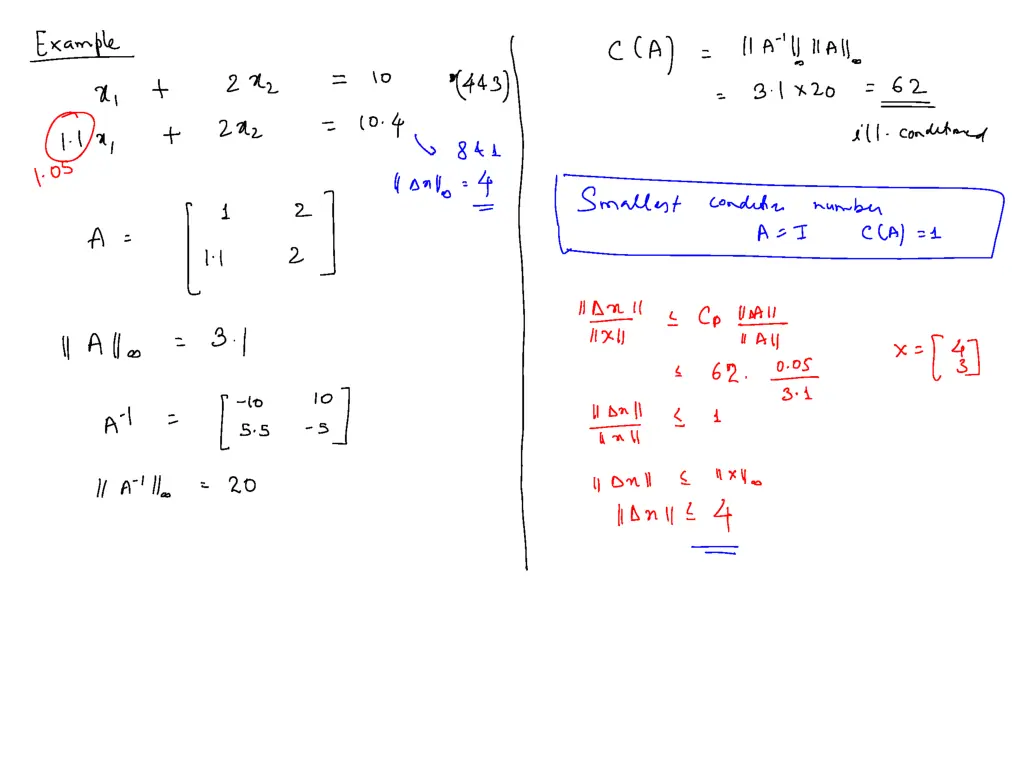 Example
x₁ + 2x₂ = 10 (4 & 3)
1.1 x₁ + 2x₂ = 10.4
1.05
8 & 1
||Δx||∞ = 4
A = [ 1 2
1.1 2 ]
||A||∞ = 3.1
A⁻¹ = [ -10 10
5.5 -5 ]
||A⁻¹||∞ = 20
C(A) = ||A⁻¹||∞ ||A||∞
= 3.1 × 20 = 62
ill-conditioned
Smallest condition number
A = I C(A) = 1
||Δx|| / ||x|| ≤ Cp ||ΔA|| / ||A||
x = [ 4
3 ]
≤ 62 . 0.05 / 3.1
||Δx|| / ||x|| ≤ 1
||Δx|| ≤ ||x||∞
||Δx|| ≤ 4